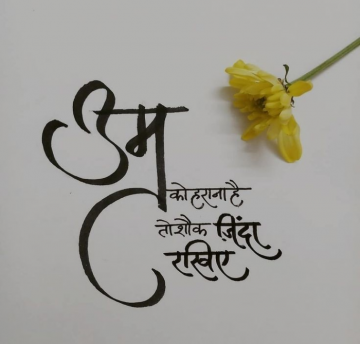 उम्र
को हराना है
तो शौक ज़िंदा
रखिए